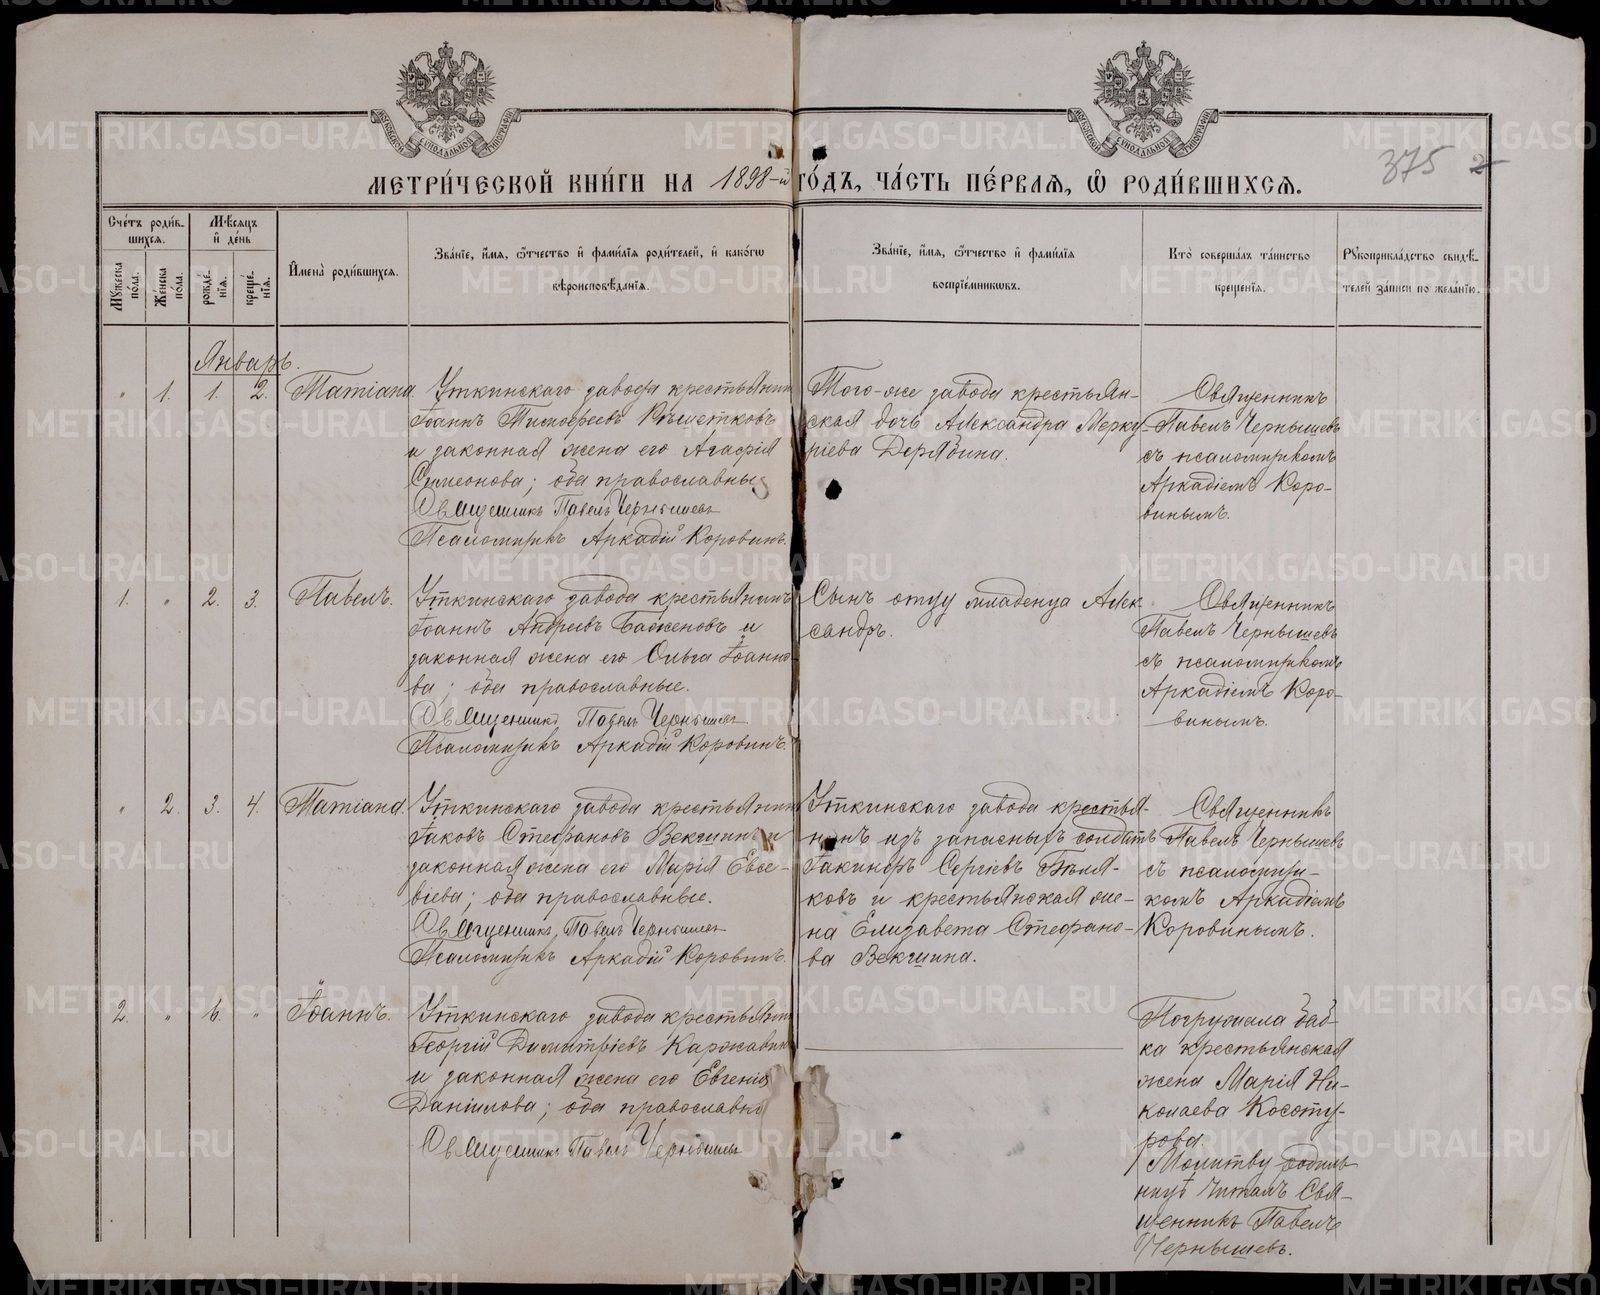 МОСКОВСКОЙ СѴНОДАЛЬНОЙ ТИПОГРАФІИ
МОСКОВСКОЙ СѴНОДАЛЬНОЙ ТИПОГРАФІИ
375 2
МЕТРИ́ЧЕСКОЙ КНИ́ГИ НА 1898-й ГО́ДЪ, ЧА́СТЬ ПЕ́РВАЯ, Ѽ РОДИ́ВШИХСЯ.
Сче́тъ роди́в-
шихся.
Мѣ́сяцъ
и҆ де́нь
Мꙋжеска по́ла.
Же́нска по́ла.
рожде́нїѧ.
креще́нїѧ.
И҆мена̀ роди́вшихся.
Зва́нїе, и҆́мя, ѻ҆́тчество и҆ фами́лїя роди́телей, и҆ како́гѡ
вѣроисповѣ́данїя.
Зва́нїе, и҆́мя, ѻ҆́тчество и҆ фами́лїя
воспрїе́мникѡвъ.
Кто̀ соверша́лъ та́инство
креще́нїя.
Рꙋкоприкла́дство свидѣ́-
телей за́писи по жела́нїю.
Январь.
" 1. 1. 2. Татіана. Уткинскаго завода крестьянинъ
Іоаннъ Тимофеевъ Кѣшетковъ
и законная жена его Агафія
Симеонова; оба православные
Священникъ Павелъ Чернышевъ
Псаломщикъ Аркадій Коровинъ.
Того-же завода крестьян-
ская дочь Александра Мерку
ріева Дерябина.
Священникъ
Павелъ Чернышевъ
съ псаломщикомъ
Аркадіемъ Коро-
винымъ.
1. " 2. 3. Павелъ. Уткинскаго завода крестьянинъ
Іоаннъ Андреевъ Баженовъ и
законная жена его Ольга Іоанно-
ва; оба православные.
Священникъ Павелъ Чернышевъ
Псаломщикъ Аркадій Коровинъ.
Сынъ отцу младенца Алек
сандръ.
Священникъ
Павелъ Чернышевъ
съ псаломщикомъ
Аркадіемъ Коро-
винымъ.
" 2. 3. 4. Татіана. Уткинскаго завода крестьянинъ
Іаковъ Стефановъ Векшинъ и
законная жена его Марія Евсе-
віева; оба православные.
Священникъ Павелъ Чернышевъ
Псаломщикъ Аркадій Коровинъ.
Уткинскаго завода крестья-
нинъ изъ запасныхъ солдатъ
Іакинфъ Сергіевъ Бѣля-
ковъ и крестьянская же-
на Елизавета Стефано-
ва Векшина.
Священникъ
Павелъ Чернышевъ
съ псаломщи-
комъ Аркадіемъ
Коровинымъ.
2. " 6. " Іоаннъ. Уткинскаго завода крестьянинъ
Георгій Димитріевъ Каржавинъ
и законная жена его Евгенія
Даніилова; оба православные
Священникъ Павелъ Чернышевъ
Погружала баб-
ка крестьянская
жена Марія Ни-
колаева Косоту-
рова.
Молитву родиль-
ницѣ читалъ Свя-
щенникъ Павелъ
Чернышевъ.
METRIKI.GASO-URAL.RU